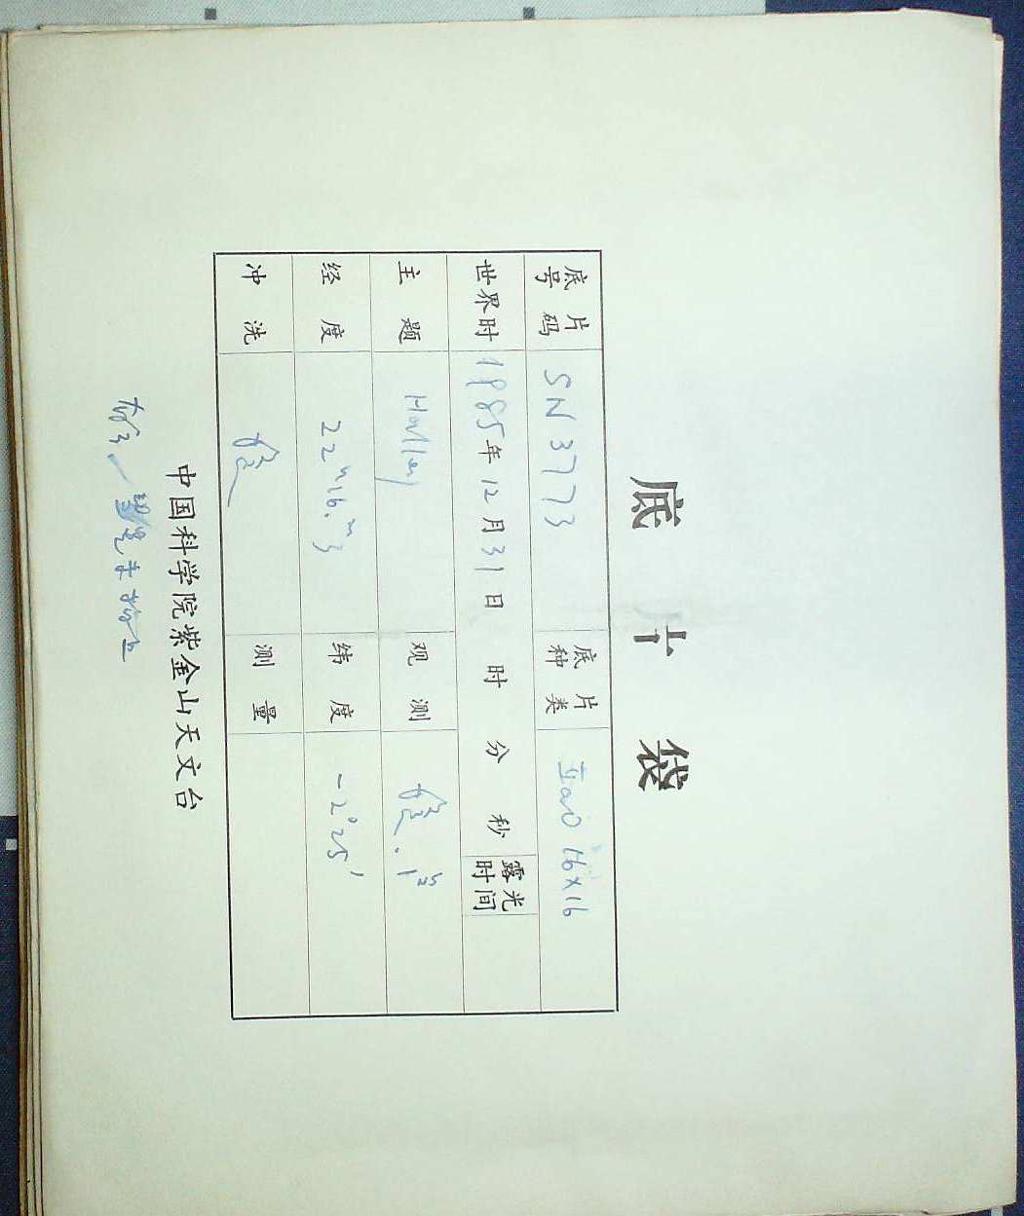 底片袋
底片号码 SN 3773 底片种类 IIaO 16×16
世界时 1985年12月31日 时 分 秒 露光时间
主题 Halley 观测
经度 22h16.m3 纬度 -2°25′
冲洗 测量
中国科学院紫金山天文台